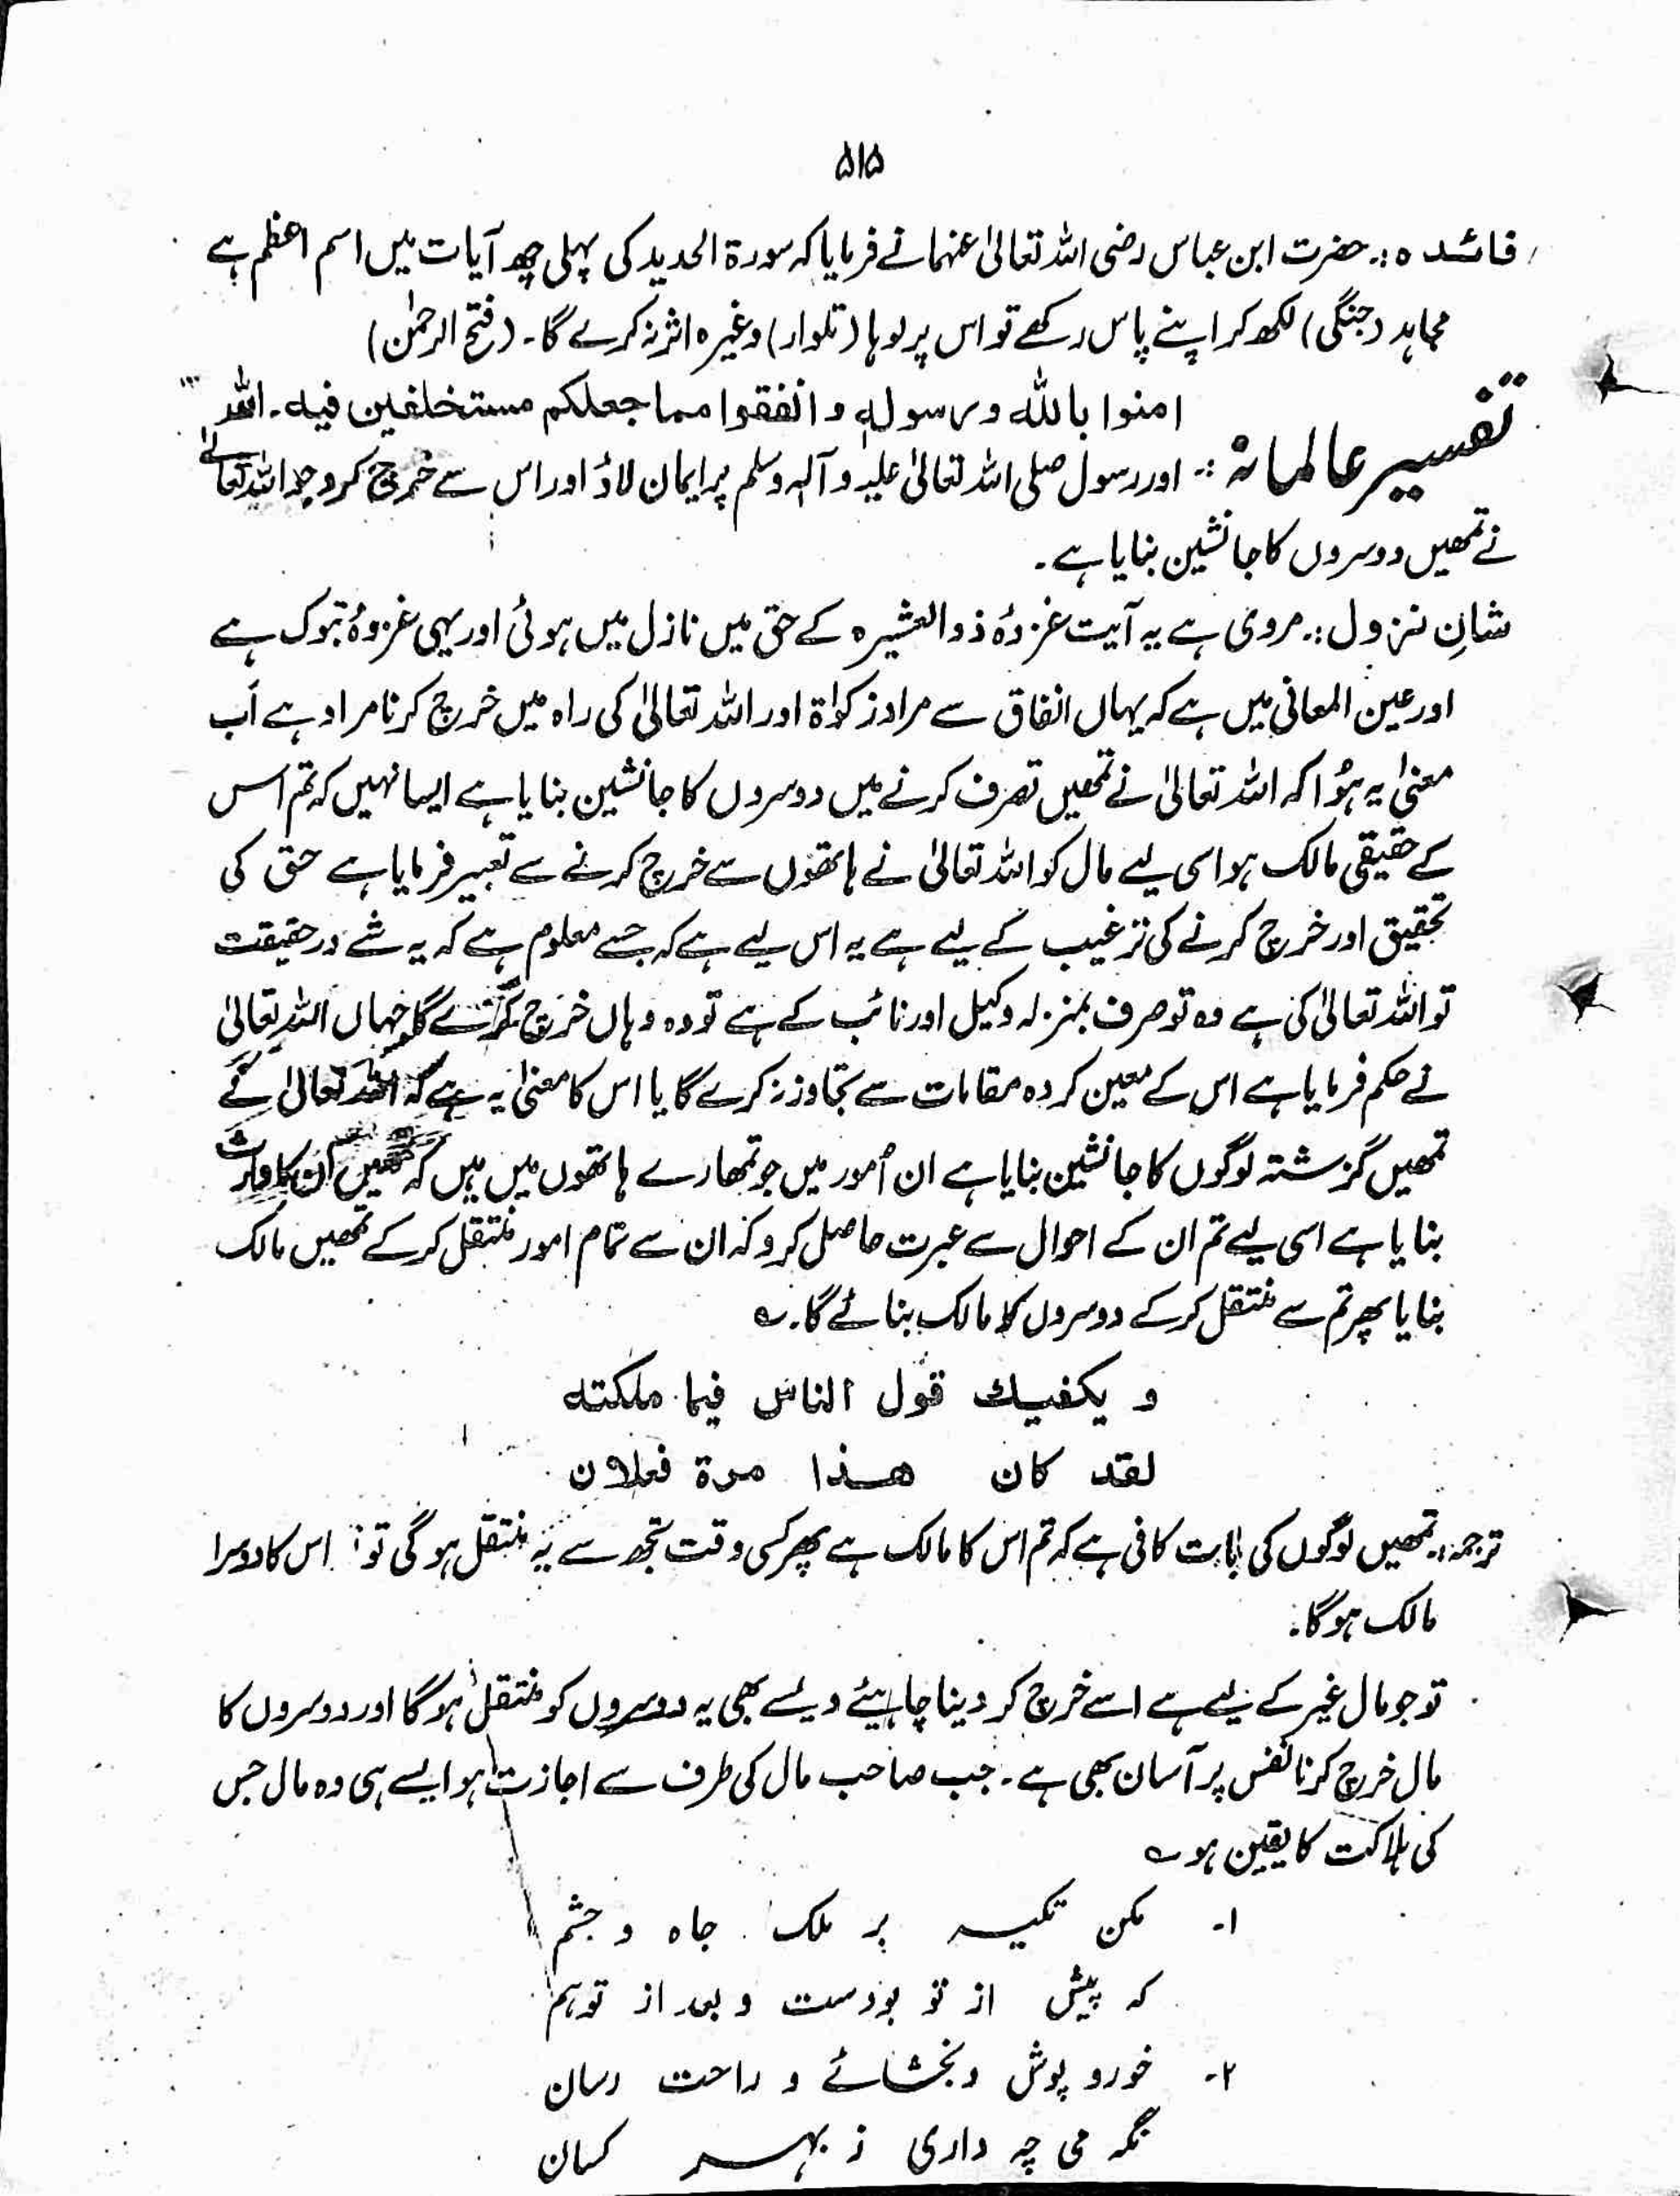 ۵۱۵
فائدہ :۔ حضرت ابن عباس رضی اللہ تعالیٰ عنہما نے فرمایا کہ سورۃ الحدید کی پہلی چھ آیات میں اسم اعظم ہے
مجاہد (جنگی) لکھ کر اپنے پاس رکھے تو اس پر لوہا (تلوار) وغیرہ اثر نہ کرے گا۔ (فتح الرحمٰن)
امنوا باللہ ورسولہ وانفقوا مما جعلکم مستخلفین فیہ۔ اللہ
تفسیر عالمانہ :۔ اور رسول صلی اللہ تعالیٰ علیہ وآلہٖ وسلم پر ایمان لاؤ اور اس سے خرچ کرو جو اللہ تعالیٰ
نے تمھیں دوسروں کا جانشین بنایا ہے۔
شانِ نزول :۔ مروی ہے یہ آیت غزوۂ ذوالعشیرہ کے حق میں نازل میں ہوئی اور یہی غزوۂ تبوک ہے
اور عین المعانی میں ہے کہ یہاں انفاق سے مراد زکوٰۃ اور اللہ تعالیٰ کی راہ میں خرچ کرنا مراد ہے اَب
معنیٰ یہ ہُوا کہ اللہ تعالیٰ نے تمھیں تصرف کرنے میں دوسروں کا جانشین بنایا ہے ایسا نہیں کہ تم اس
کے حقیقی مالک ہو اسی لیے مال کو اللہ تعالیٰ نے ہاتھوں سے خرچ کرنے سے تعبیر فرمایا ہے حق کی
تحقیق اور خرچ کرنے کی ترغیب کے لیے ہے یہ اس لیے ہے کہ جسے معلوم ہے کہ یہ شے درحقیقت
تو اللہ تعالیٰ کی ہے وہ تو صرف بمنزلہ وکیل اور نائب کے ہے تو وہ وہاں خرچ کرے گا جہاں اللہ تعالیٰ
نے حکم فرمایا ہے اس کے معین کردہ مقامات سے تجاوز نہ کرے گا یا اس کا معنیٰ یہ ہے کہ اللہ تعالیٰ نے
تمھیں گزشتہ لوگوں کا جانشین بنایا ہے ان اُمور میں جو تمھارے ہاتھوں میں ہیں کہ تمھیں ان کا وارث
بنایا ہے اسی لیے تم ان کے احوال سے عبرت حاصل کرو کہ ان سے تمام امور منتقل کر کے تمھیں مالک
بنایا پھر تم سے منتقل کر کے دوسروں کا مالک بنائے گا۔ ؎
و یکفیك قول الناس فیما ملکتہ
لقد کان ھذا مرۃ فعلان
ترجمہ :۔ تمھیں لوگوں کی بات کافی ہے کہ تم اس کا مالک ہے پھر کسی وقت تجھ سے یہ منتقل ہو گی تو اس کا دوسرا
مالک ہوگا۔
تو جو مال غیر کے لیے ہے اسے خرچ کر دینا چاہیئے ویسے بھی یہ دوسروں کو منتقل ہوگا اور دوسروں کا
مال خرچ کرنا نفس پر آسان بھی ہے۔ جب صاحب مال کی طرف سے اجازت ہو ایسے ہی وہ مال جس
کی ہلاکت کا یقین ہو ؎
۱۔ مکن تکیہ بر ملک جاہ و حشم
کہ پیش از تو بودست و بعد از تو ہم
۲۔ خورو پوش و بخشائے و راحت رسان
نگہ می چہ داری ز بہر کسان